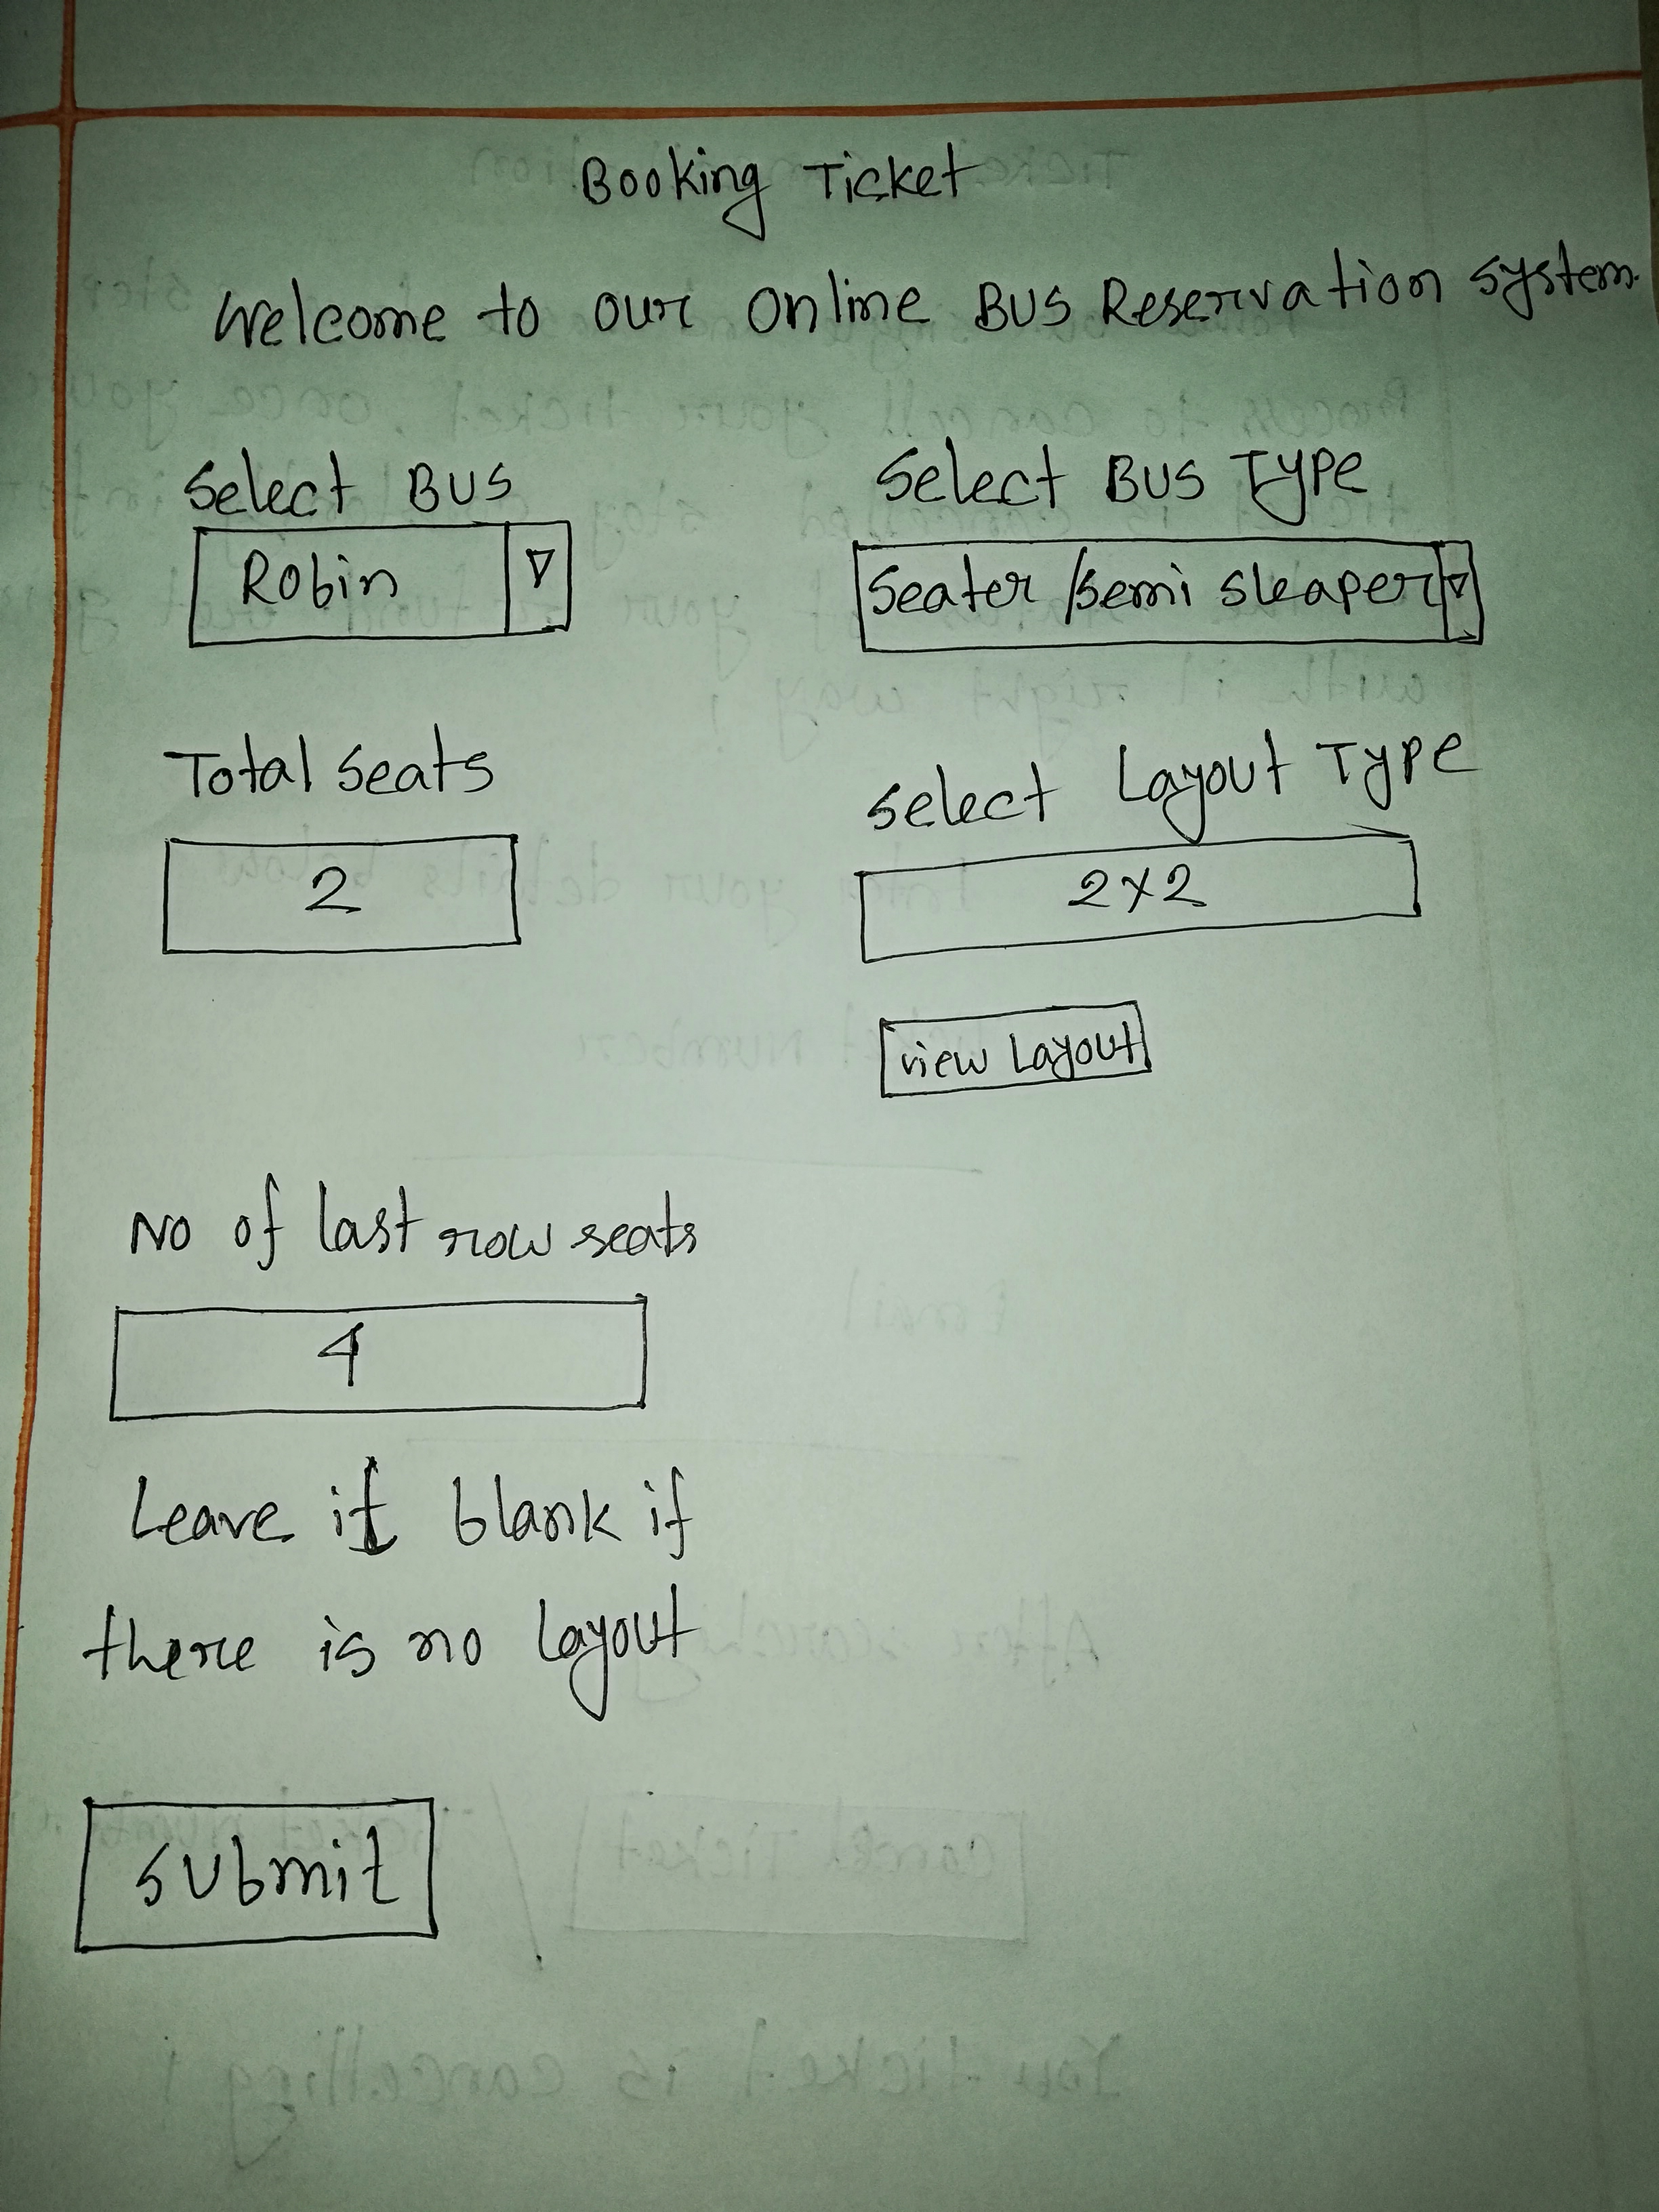 Booking Ticket
Welcome to our Online Bus Reservation system.
Select Bus
Robin
Select Bus Type
Seater/semi sleaper
Total Seats
2
Select Layout Type
2x2
view Layout
No of last row seats
4
Leave it blank if
there is no layout
Submit